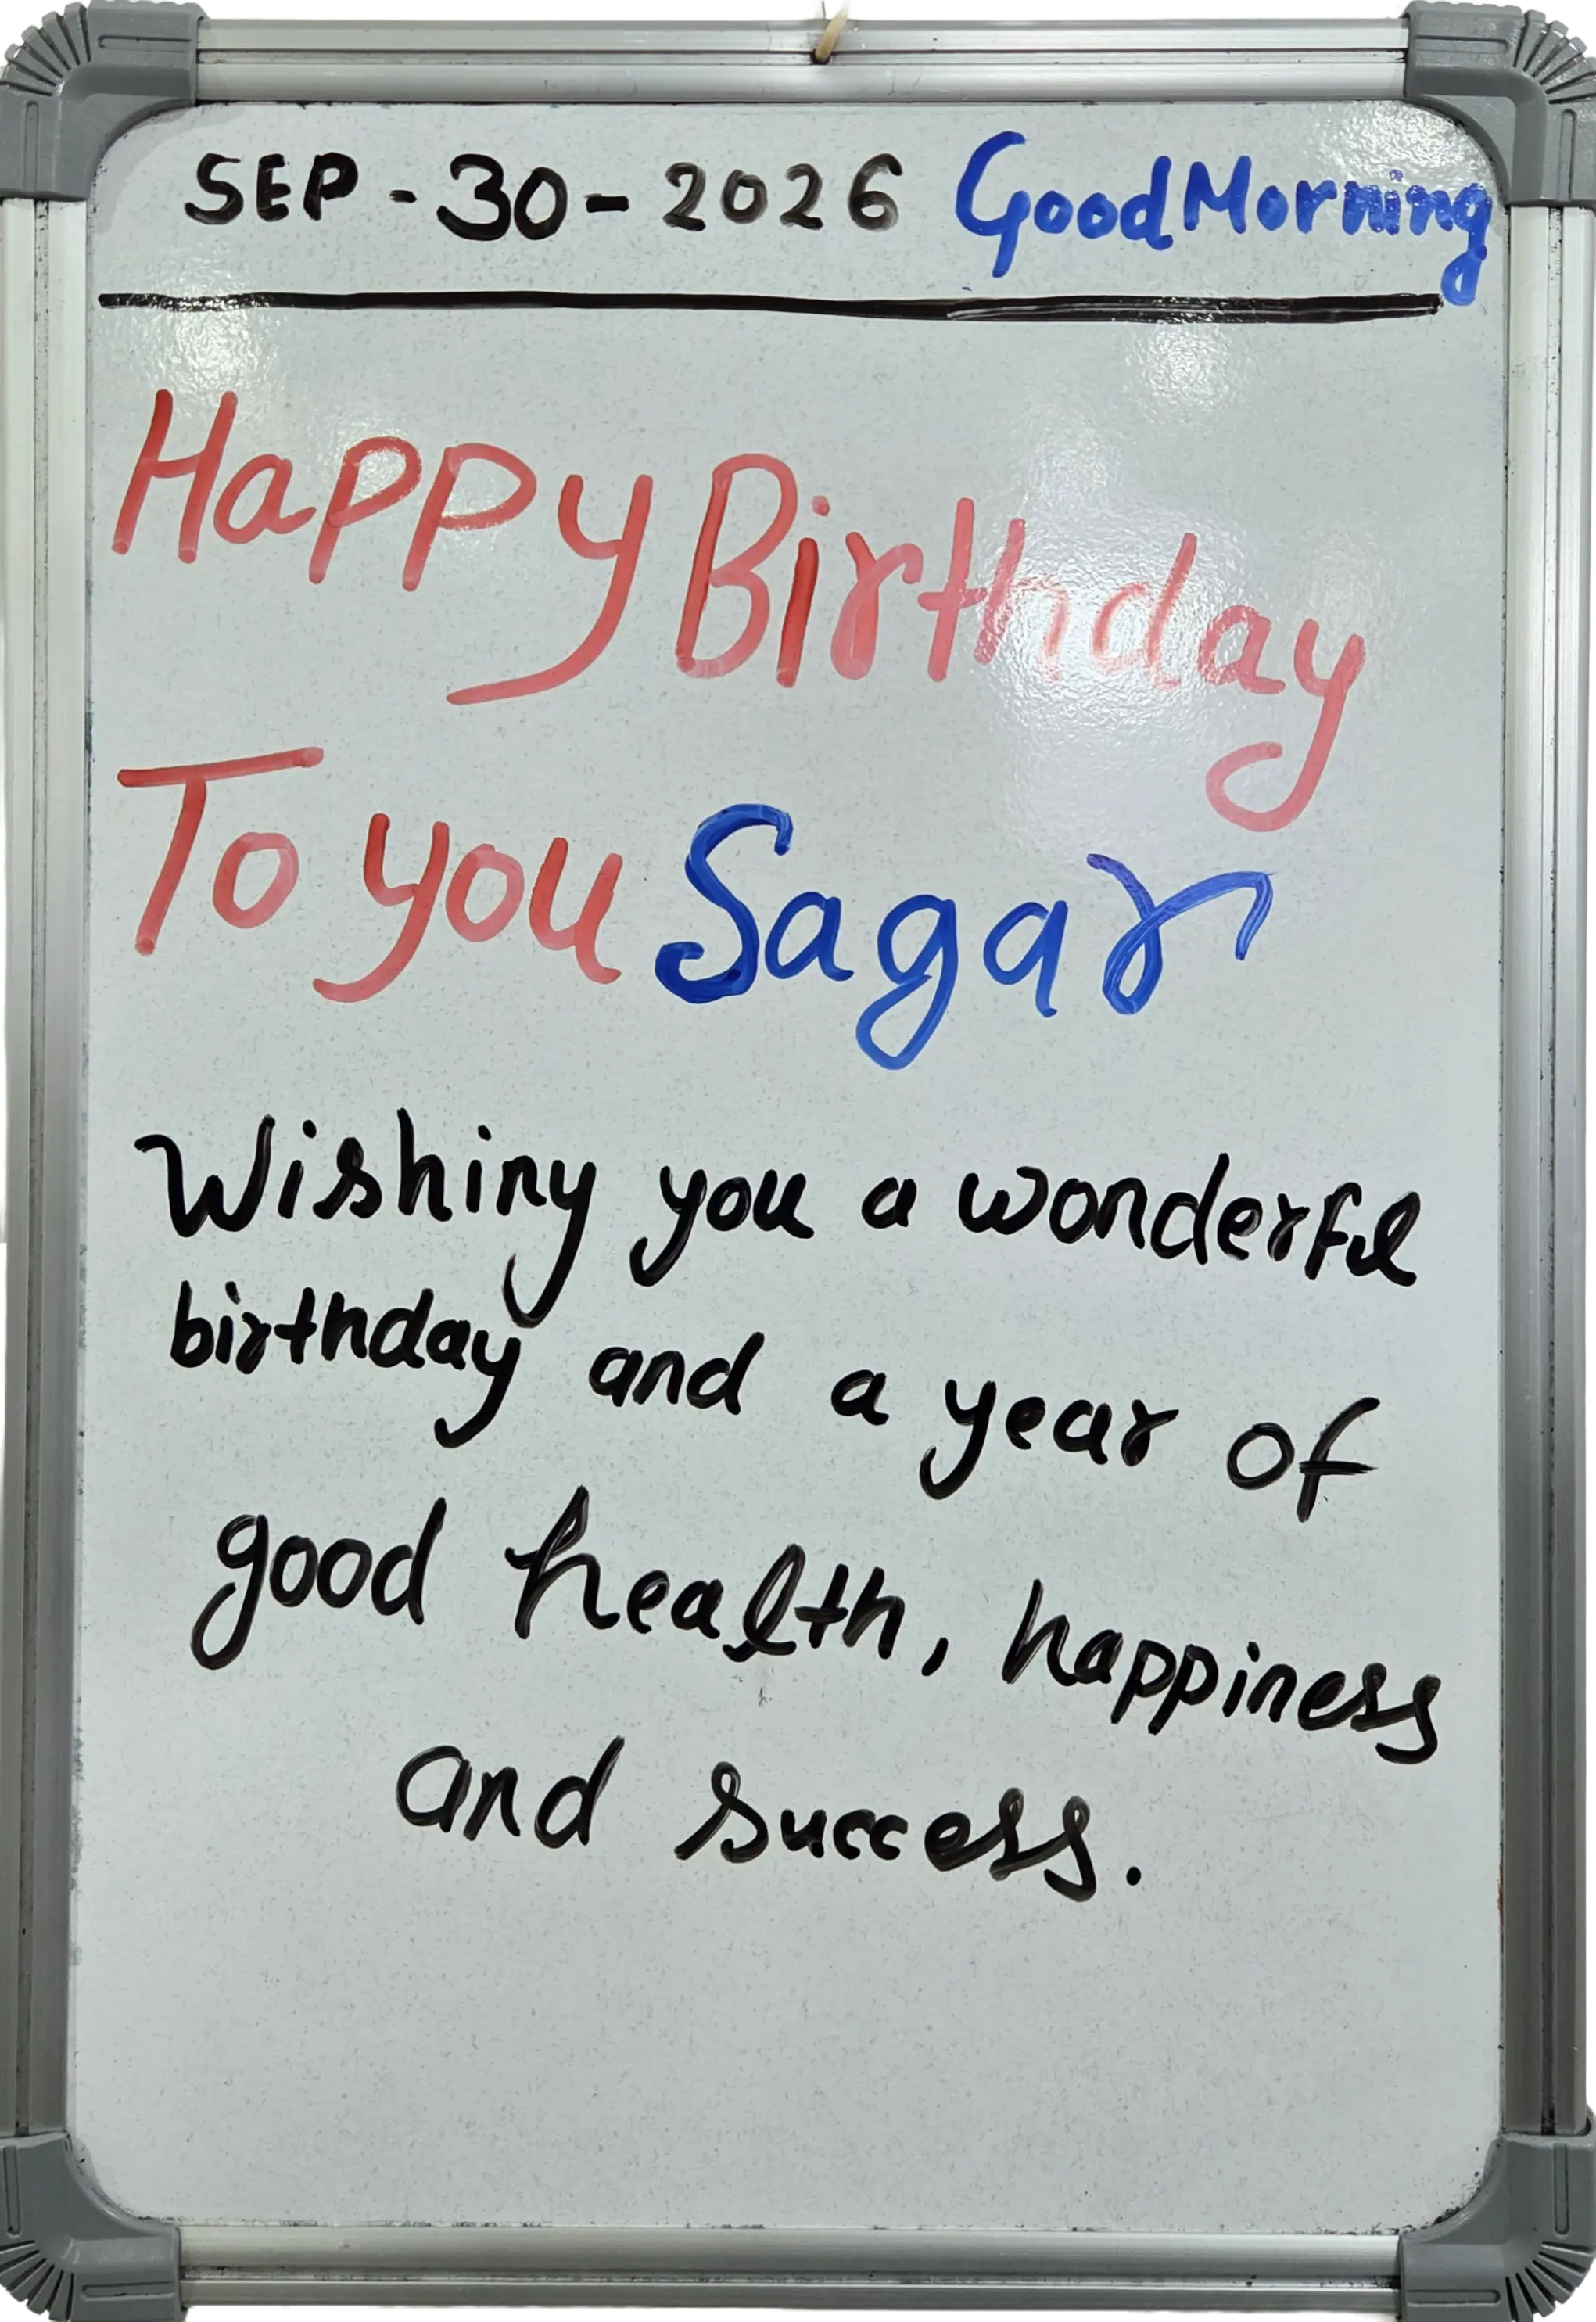 SEP-30-2026 GoodMorning
Happy Birthday
To you Sagar
Wishiny you a wonderful
birthday and a year of
good health, happiness
and success.